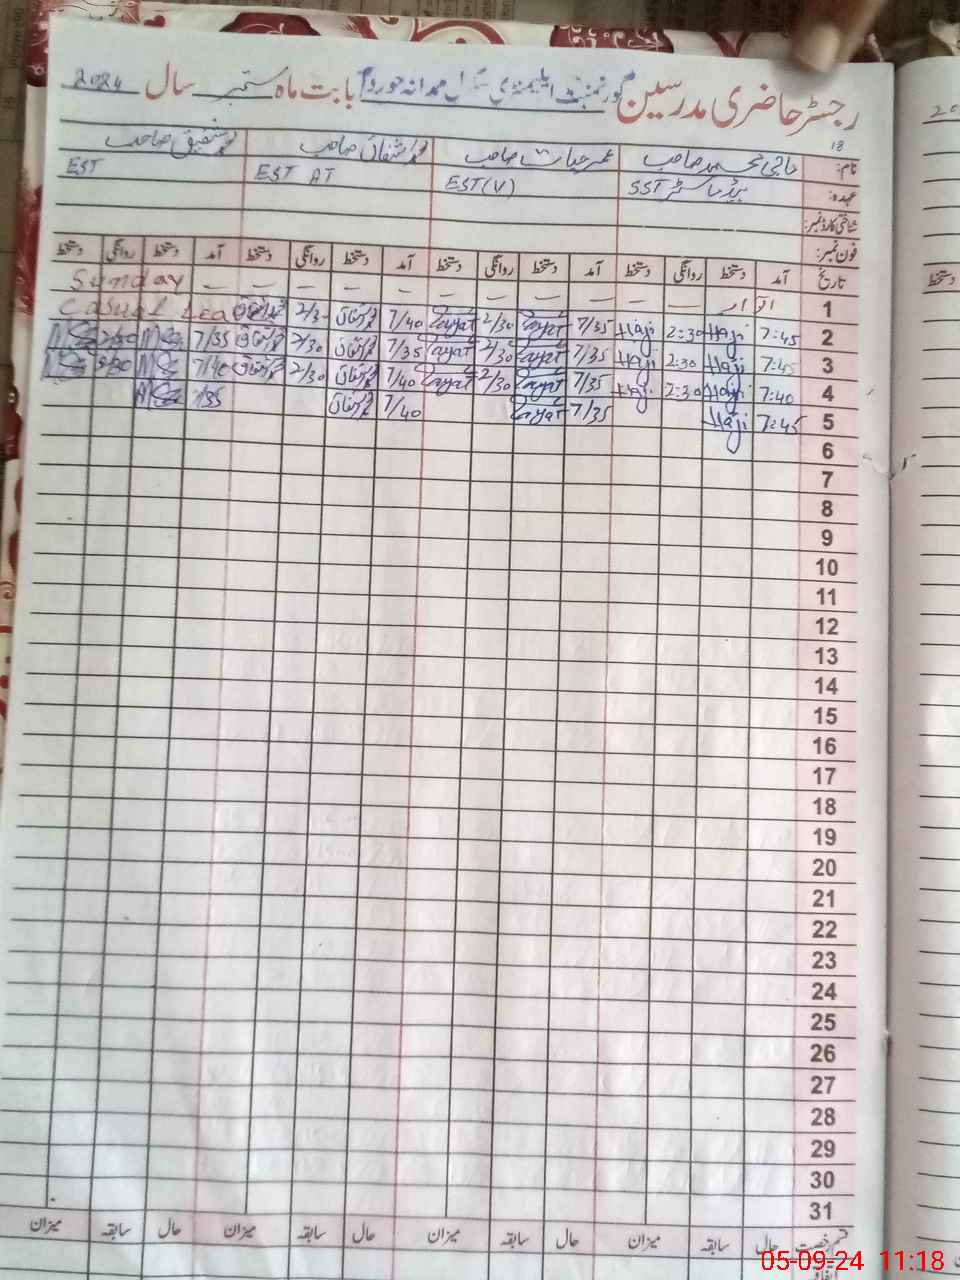 رجسٹر حاضری مدرسین گورنمنٹ ایلیمنٹری سکول بابت ماہ ستمبر سال 2024
18
نام: حاجی محمد صاحب عمر حیات صاحب محمد اشفاق صاحب محمد شفیق صاحب
عہدہ: ہیڈ ماسٹر SST EST(V) EST AT EST
شناختی کارڈ نمبر:
فون نمبر:
تاریخ آمد دستخط روانگی دستخط آمد دستخط روانگی دستخط آمد دستخط روانگی دستخط آمد دستخط روانگی دستخط
1 اتوار – – – – – – – – – – – – Sunday
2 7:45 Haji 2:30 Haji 7/35 2/30 7/40 2/30 Casual Lea
3 7:45 Haji 2:30 Haji 7/35 2/30 7/35 2/30 7/35 2/30
4 7:40 Haji 2:30 Haji 7/35 2/30 7/40 2/30 7/40 2/30
5 7:45 Haji 7/35 7/40 7/35
6
7
8
9
10
11
12
13
14
15
16
17
18
19
20
21
22
23
24
25
26
27
28
29
30
31
قسم رخصت حال سابقہ میزان حال سابقہ میزان حال سابقہ میزان حال سابقہ میزان
05-09-24 11:18